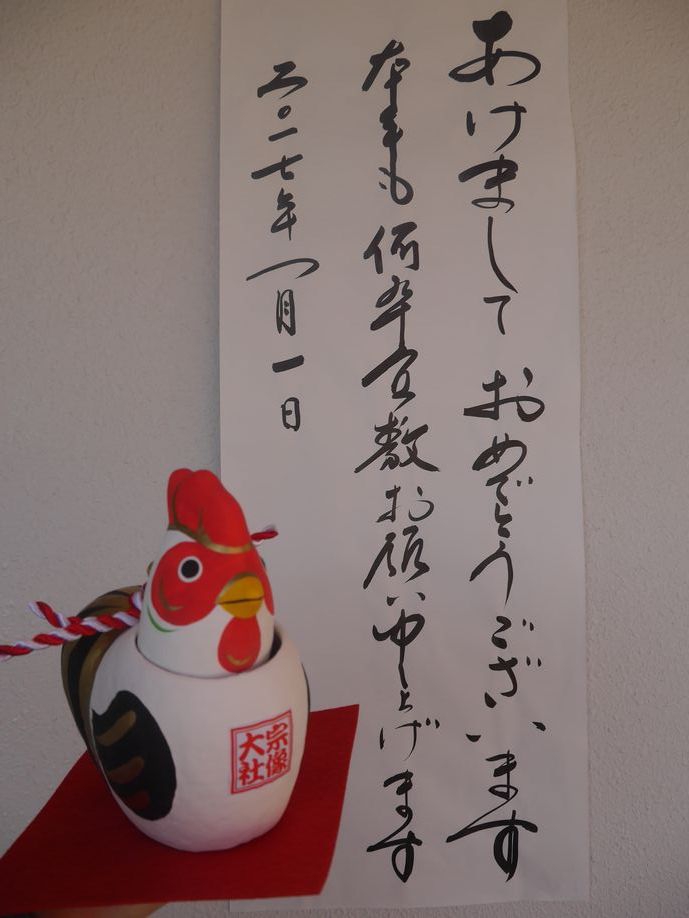 あけまして おめでとうございます
本年も何卒宜敷お願い申し上げます
二〇一七年一月一日
宗像
大社